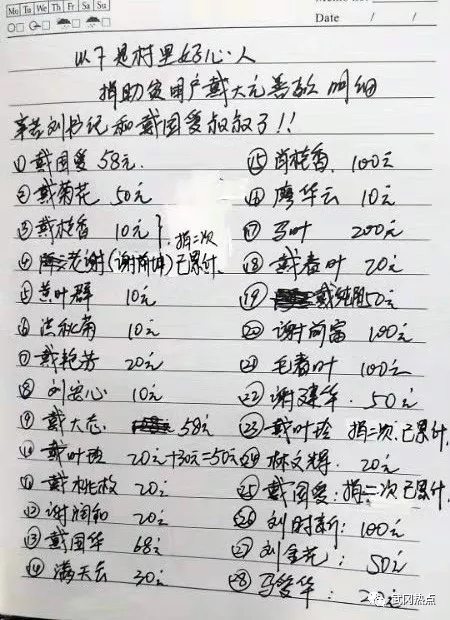 Mo Tu We Th Fr Sa Su
Date / /
以下是村里好心人
捐助贫困户戴大元善款明细
辛苦刘书记和戴国爱叔叔了!!
①戴国爱 58元.
②戴菊花 50元
③戴桂香 10元
捐二次
④老谢(谢) 已累计.
⑤黄叶群 10元
⑥洪秋菊 10元
⑦戴艳芳 20元
⑧刘安心 10元
⑨戴大志 58元
⑩戴叶玲 20元+30元=50元
⑪戴桃枚 20元
⑫谢润和 20元
⑬戴国华 68元
⑭满天云 30元
⑮肖桂香 100元
⑯廖华云 10元
⑰马叶 200元
⑱戴春叶 20元
⑲戴纯 50元
⑳谢前富 100元
㉑毛春叶 100元
㉒谢建华. 50元
㉓戴叶玲 捐二次.已累计.
㉔林文辉. 20元
㉕戴国爱:捐二次已累计.
㉖刘时新: 100元
㉗刘金花: 50元
㉘马爱华: 20元
武冈热点